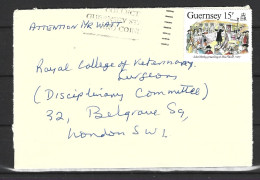 Guernsey 15P
ATTENTION MR WATT
Royal College of Veterinary
Surgeons
(Disciplinary Committee)
32, Belgrave Sq,
London SW1.